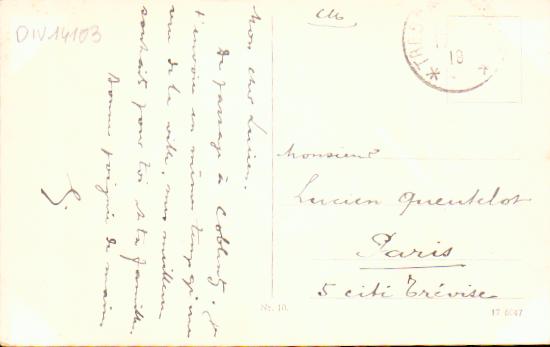 DIV14103
Mon cher Lucien.
De passage à Coblentz, je
t'envoie en même temps qu'une
vue de la ville, mes meilleurs
souhaits pour toi et ta famille.
Bonne poignée de main.
G.
* TRÉS
18
*
Monsieur
Lucien
Paris
5 cité Trévise
Nr. 10.
17 6047